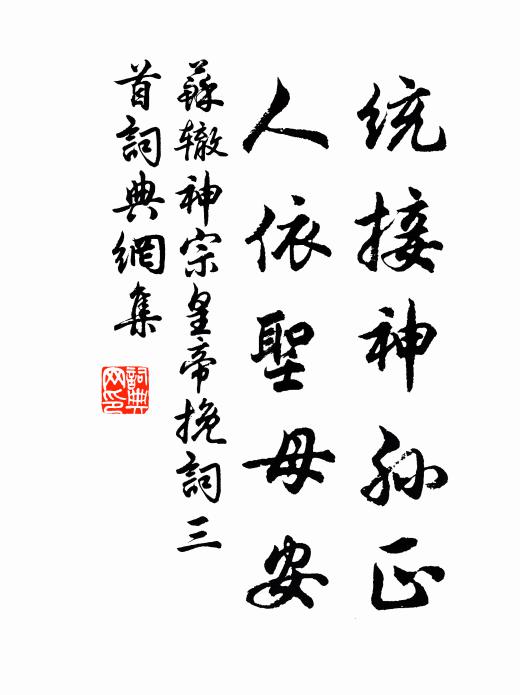 統接神孫正
人依聖母安
蘇轍神宗皇帝挽詞三
首詞典網集
詞典
网印